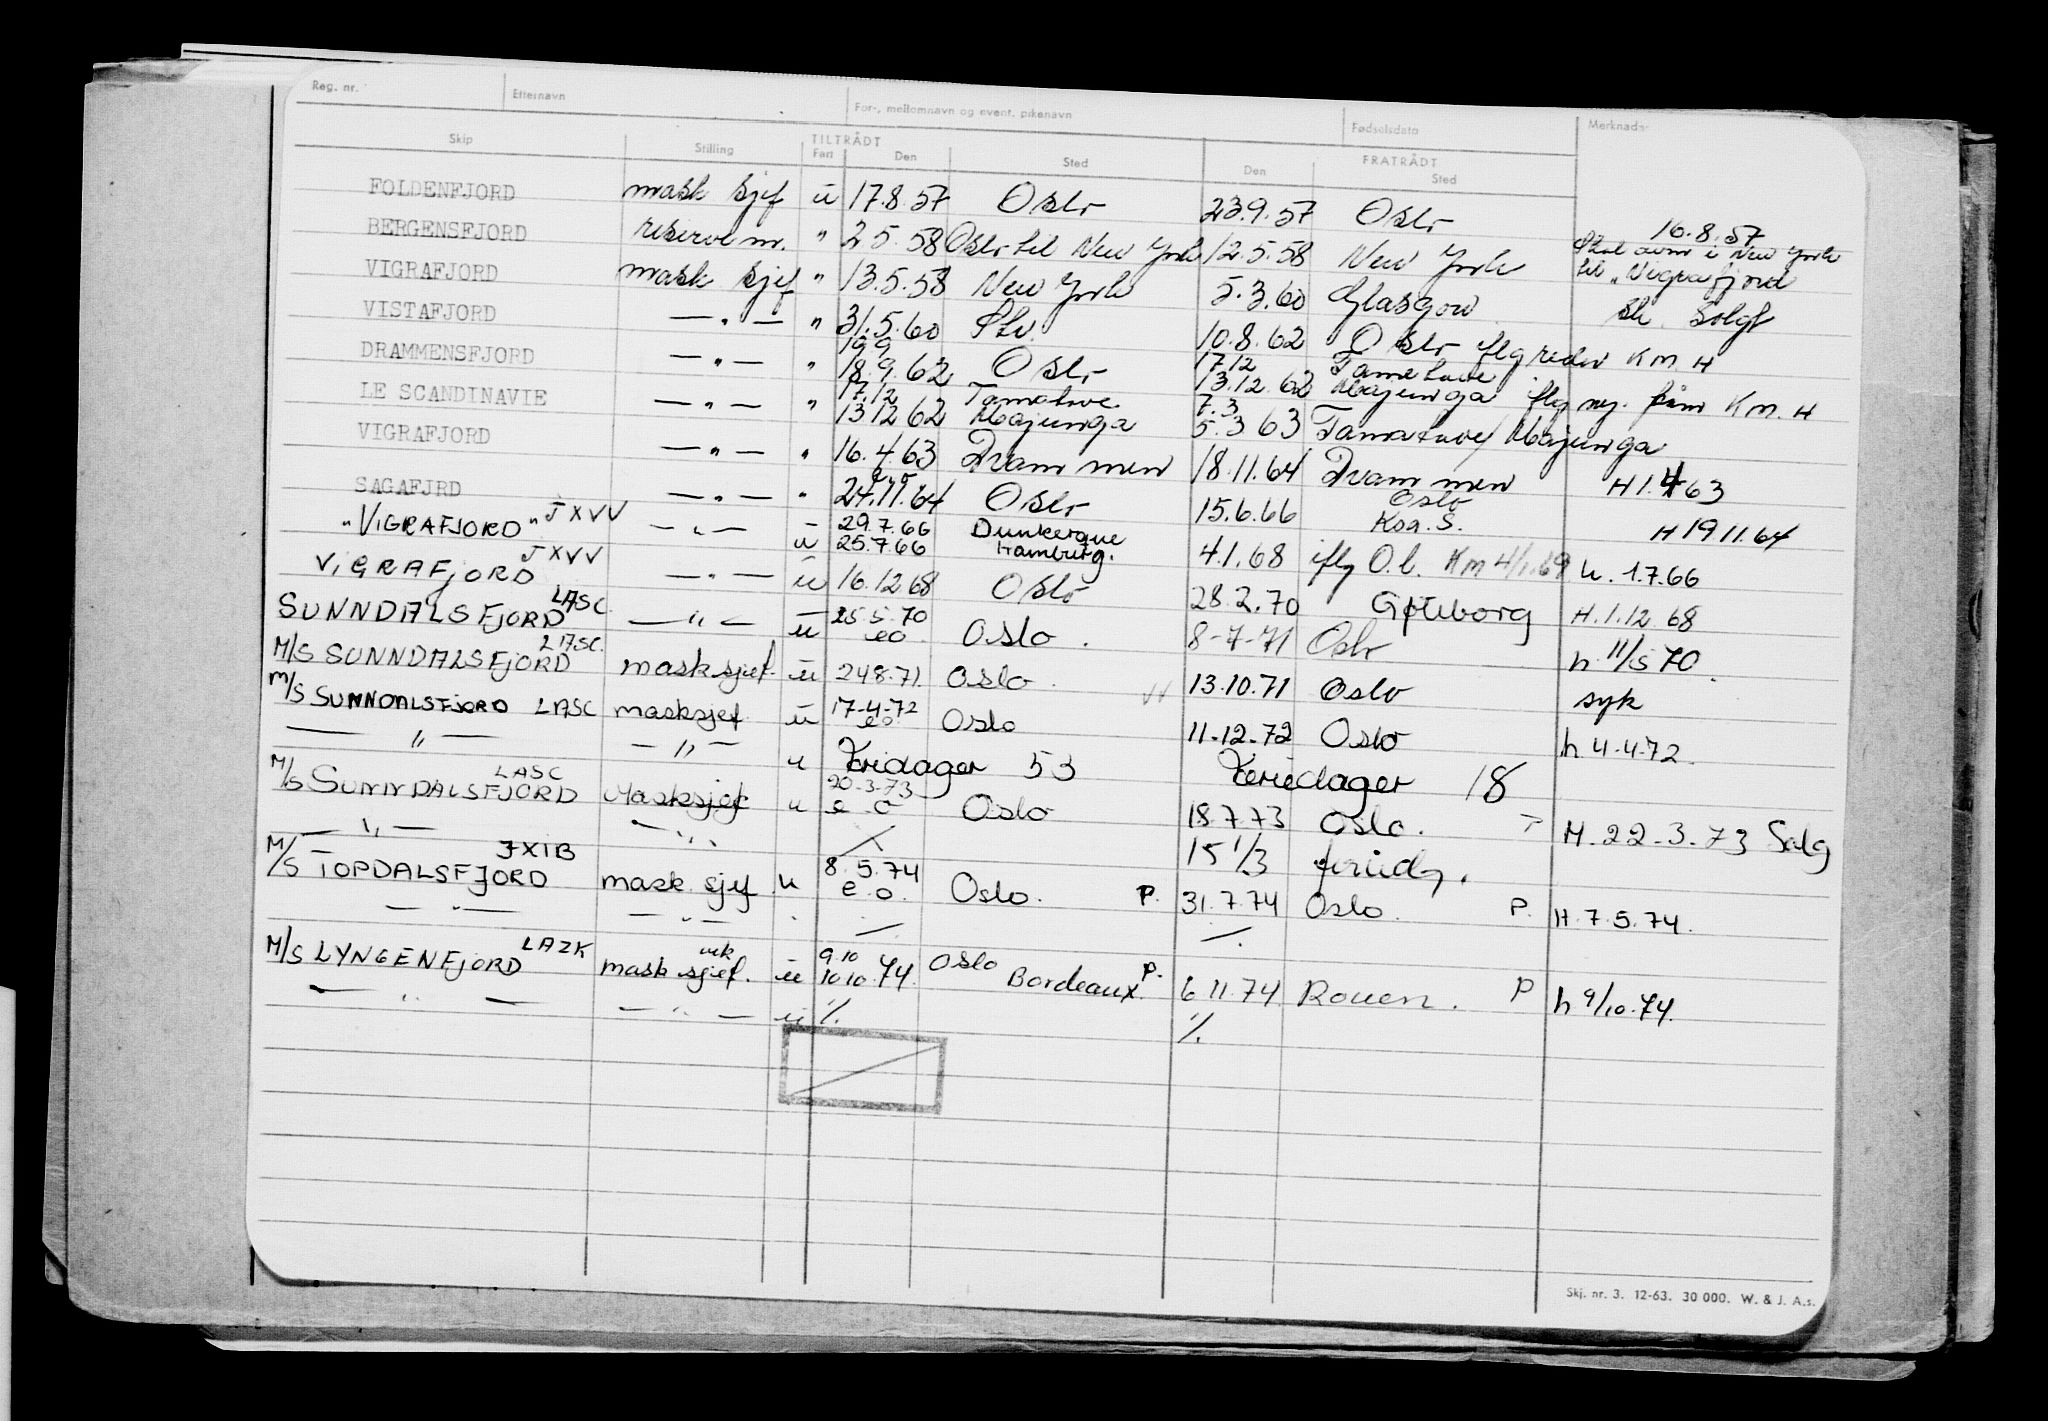 Reg. nr. Etternavn For-, mellomnavn og event. pikenavn Fødselsdata Merknader
Skip Stilling TILTRÅDT Fart Den Sted FRATRÅDT Den Sted
FOLDENFJORD mask sjef u 17.8.57 Oslo 23.9.57 Oslo 16.8.57
BERGENSFJORD reserve m. " 2 5.58 Oslo til New York 12.5.58 New York Skal avm i New York
VIGRAFJORD mask sjef " 13.5.58 New York 5.3.60 Glasgow til "Vigrafjord
VISTAFJORD — " — " 31.5.60 10.8.62 Oslo iflg rederi Km H
DRAMMENSFJORD — " — " 19.9 18.9.62 Oslo 17.12 13.12.62 Tamatave Majunga iflg my. Km. H
LE SCANDINAVIE — " — " 17.12 13 12 62 Tamatave Majunga 7.3 5.3 63 Tamatave/Majunga
VIGRAFJORD — " — " 16.4.63 Drammen 18.11.64 Drammen H 1.4 63
SAGAFJRD — " — " 24.11.64 Oslo 15.6.66 Oslo H 19 11.64
"VIGRAFJORD" JXVV — " — u 29.7.66 25.7.66 Dunkerque Hamburg. 4.1.68 iflg O.l. Km 4/1.69 h. 1.7.66
ViGRAFjORD JXVV — " — u 16.12.68 Oslo 28.2.70 Gøteborg H.1.12.68
SUNNDALSFJORD LASC. — " — u 25.5.70 eo. Oslo. 8-7-71 Oslo h 11/5 70.
M/S SUNNDALSFJORD LASC. masksjef u 248.71 Oslo. 13.10.71 Oslo syk
M/S SUNNDALSFJORD LASC masksjef u 17-4-72 eo Oslo 11-12.72 Oslo h 4-4-72.
— " — — " — u Feridager 53 Feriedager 18
M/S SUNNDALSFJORD LASC Masksjef u 20-3-73 e o Oslo 18.7.73 Oslo. H. 22-3.73 Salg
— " — — " 15 1/3 feriedg.
M/S TOPDALSFJORD JXIB mask. sjef u 8.5.74 e.o. Oslo. P. 31.7.74 Oslo. P. H.7.5.74.
— " — — " —
M/S LYNGENFJORD LAZK mask sjef. vik u 9.10 10 10.74. Oslo Bordeaux. P. 6 11.74 Rouen. P h 9/10.74.
— " — — " — u %. %.
Skj. nr. 3. 12-63. 30 000. W. & J. A.s.